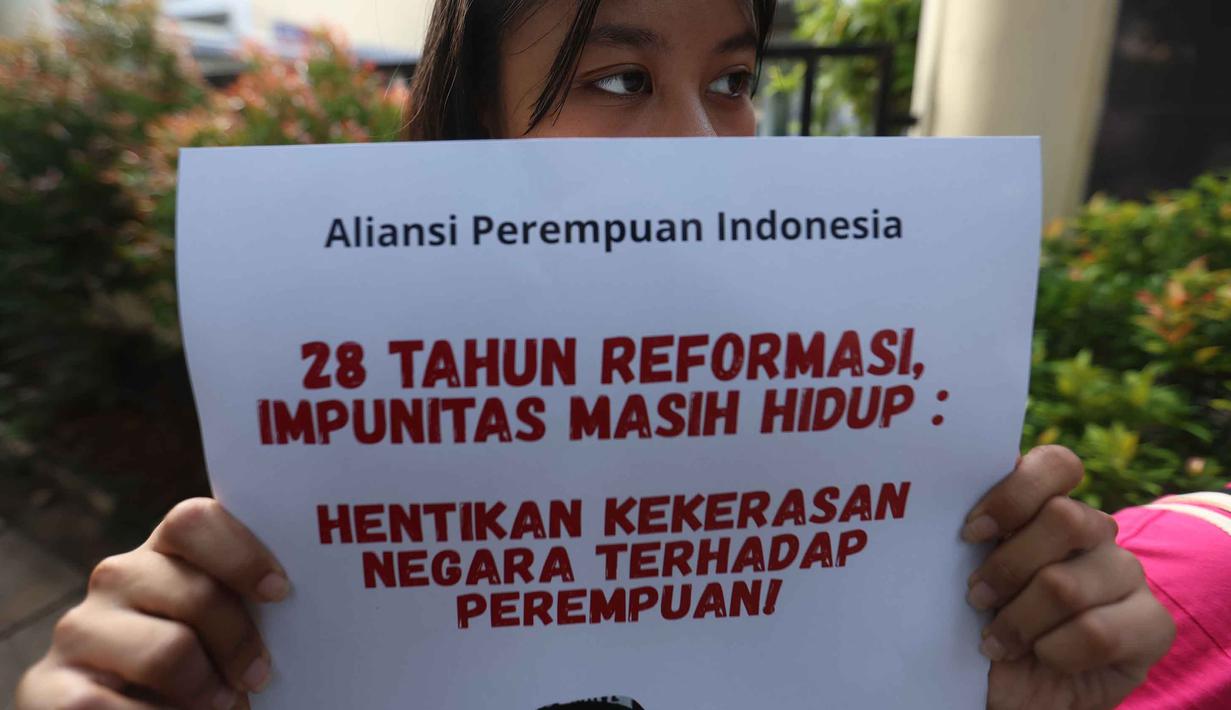 Aliansi Perempuan Indonesia
28 TAHUN REFORMASI,
IMPUNITAS MASIH HIDUP :
HENTIKAN KEKERASAN
NEGARA TERHADAP
PEREMPUAN!